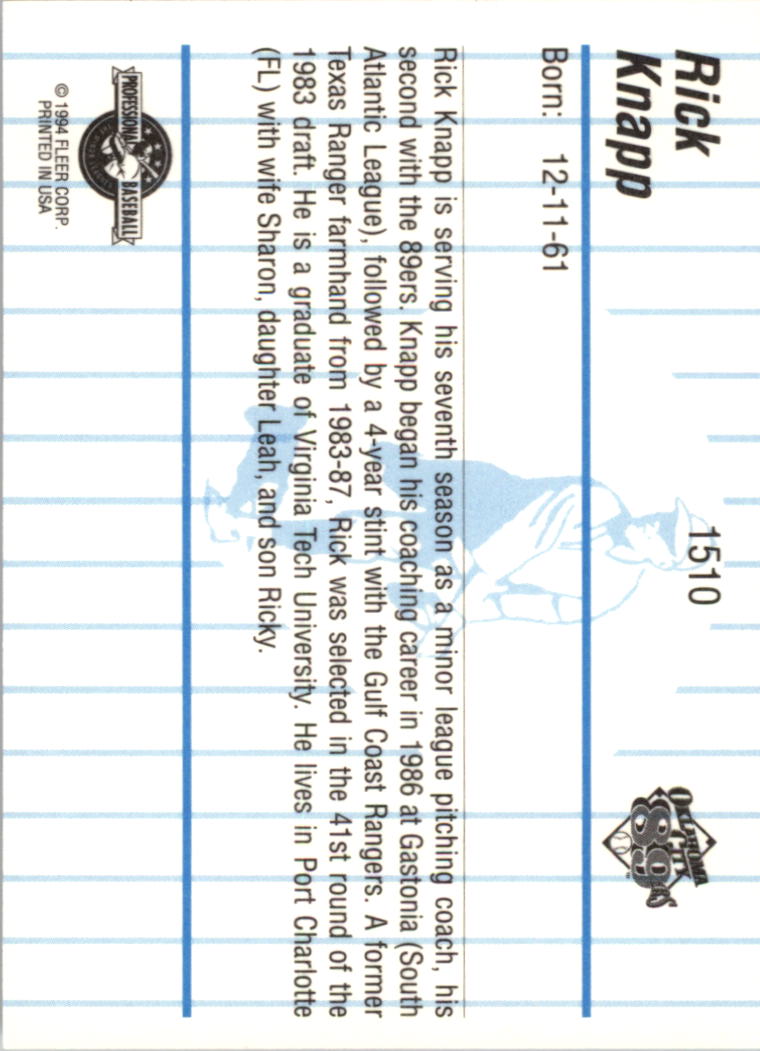 Rick
Knapp
1510
OKLAHOMA
CITY
89ERS
Born: 12-11-61
Rick Knapp is serving his seventh season as a minor league pitching coach, his
second with the 89ers. Knapp began his coaching career in 1986 at Gastonia (South
Atlantic League), followed by a 4-year stint with the Gulf Coast Rangers. A former
Texas Ranger farmhand from 1983-87, Rick was selected in the 41st round of the
1983 draft. He is a graduate of Virginia Tech University. He lives in Port Charlotte
(FL) with wife Sharon, daughter Leah, and son Ricky.
PROFESSIONAL BASEBALL
© 1994 FLEER CORP.
PRINTED IN USA